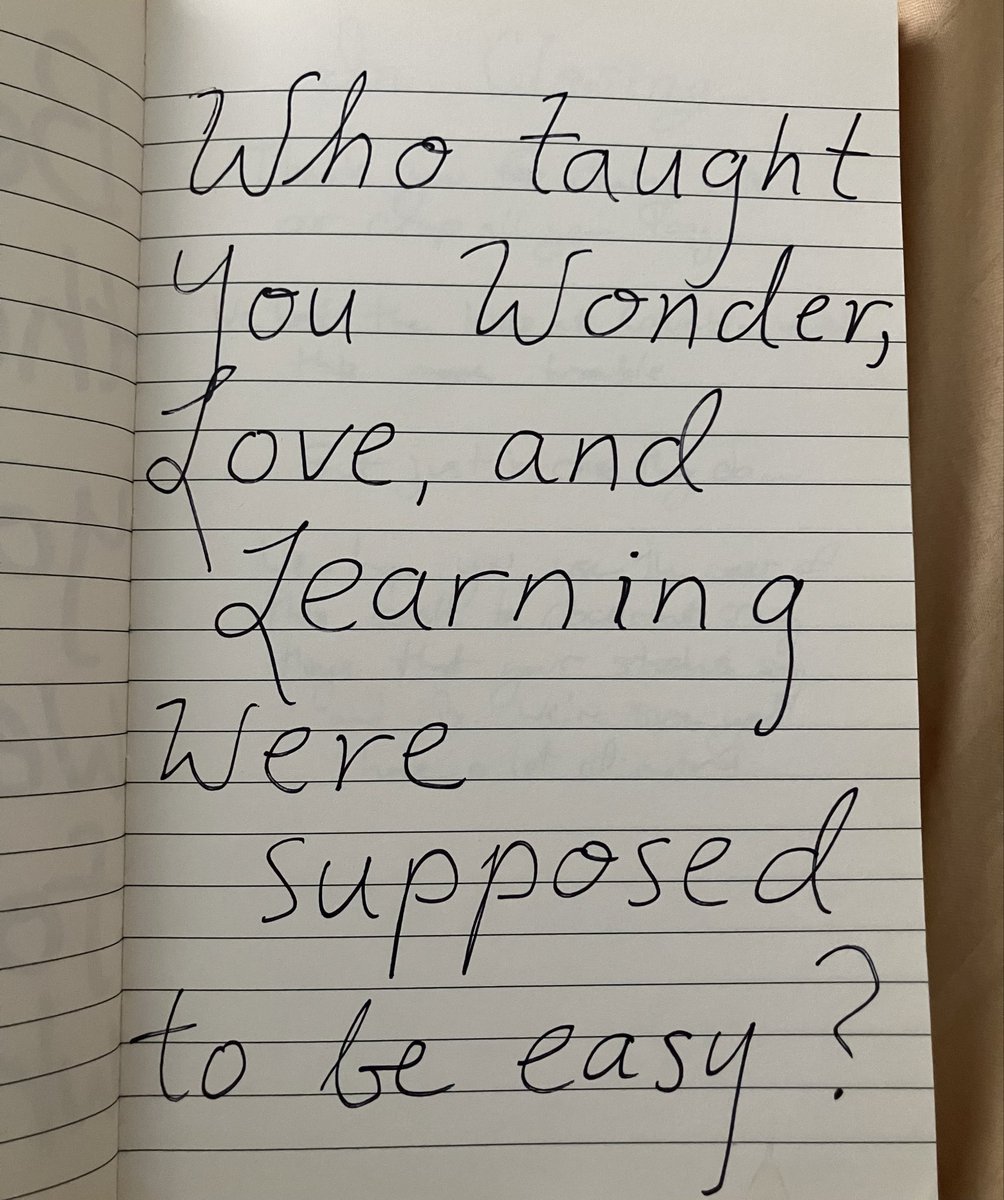 Who taught
you Wonder,
Love, and
Learning
Were
supposed
to be easy?